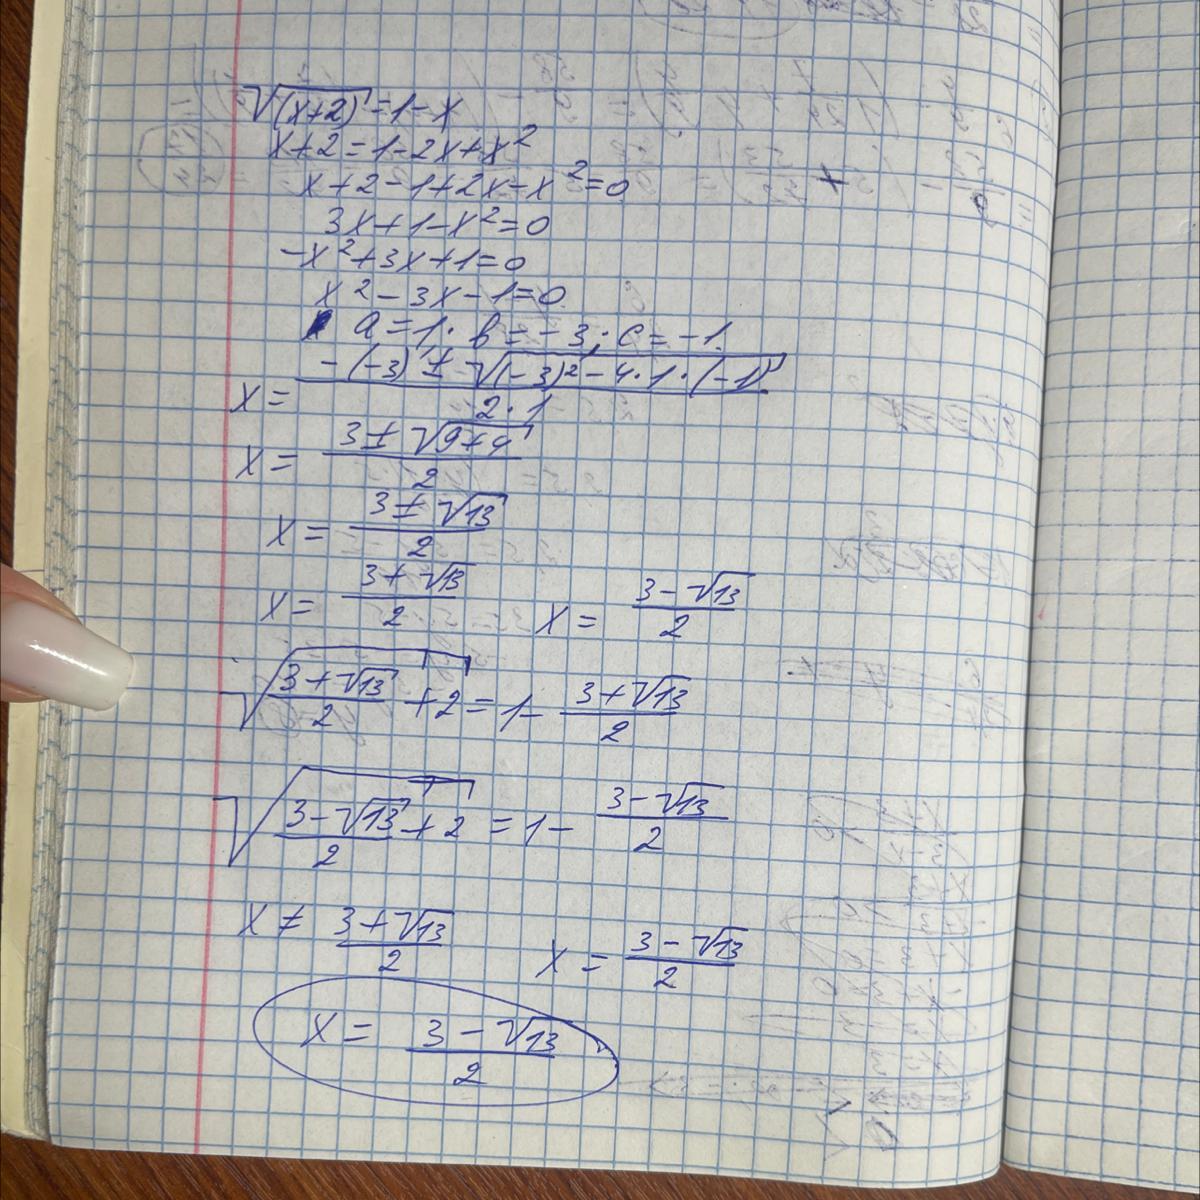 √(x+2) = 1-x
x+2 = 1-2x+x²
x+2-1+2x-x²=0
3x+1-x²=0
-x²+3x+1=0
x²-3x-1=0
a=1; b=-3; c=-1.
x = (-(-3) ± √((-3)²-4·1·(-1)))/(2·1)
x = (3±√(9+4))/2
x = (3±√13)/2
x = (3+√13)/2 x = (3-√13)/2
√((3+√13)/2 + 2) = 1 - (3+√13)/2
√((3-√13)/2 + 2) = 1 - (3-√13)/2
x ≠ (3+√13)/2 x = (3-√13)/2
x = (3-√13)/2